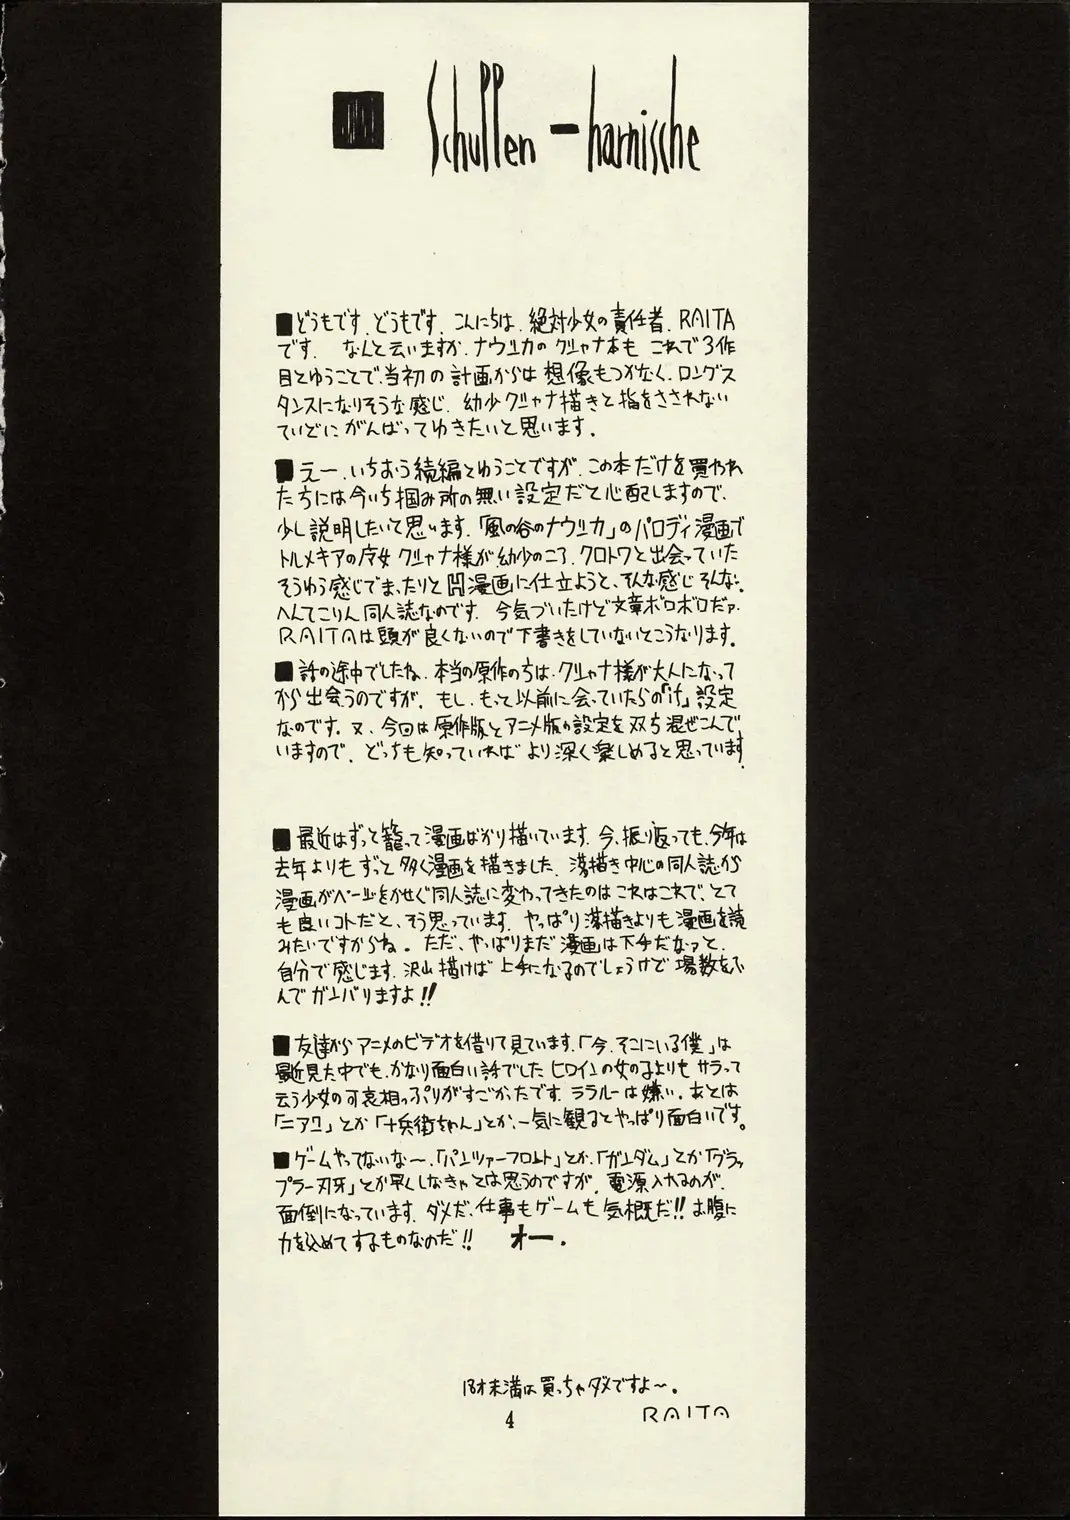 ■ Schuppen-harnische
■どうもです、どうもです、こんにちは、絶対少女の責任者、RAITA
です。 なんと云いますか、ナウシカのクシャナ本も これで3作
目とゆうことで、当初の計画からは想像もつかなく、ロングス
タンスになりそうな感じ、幼少クシャナ描きと指をさされない
ていどにがんばってゆきたいと思います。
■えー、いちおう続編とゆうことですが、この本だけを買われ
たちには今いち掴み所の無い設定だと心配しますので、
少し説明したいと思います。「風の谷のナウシカ」のパロディ漫画で
トルメキアの皇女クシャナ様が幼少のころ、クロトワと出会っていた
そうゆう感じでまったりとH漫画に仕立ようと、そんな感じそんな。
へんてこりん同人誌なのです。今気づいたけど文章ボロボロだァ、
RAITAは頭が良くないので下書きをしていないとこうなります。
■話の途中でしたね、本当の原作のちは、クシャナ様が大人になって
から出会うのですが、もし、もっと以前に会っていたらの「if」設定
なのです。又、今回は原作版とアニメ版の設定を双ち混ぜこんで
いますので、どっちも知っていればより深く楽しめると思っています
■最近はずっと籠って漫画ばかり描いています。今、振り返っても、今年は
去年よりもずっと多く漫画を描きました。落描き中心の同人誌から
漫画がページをかせぐ同人誌に変わってきたのはこれはこれで、とて
も良いコトだと、そう思っています。やっぱり落描きよりも漫画を読
みたいですからね。ただ、やっぱりまだ漫画は下手だなァと、
自分で感じます。沢山描けば上手になるのでしょうけど場数をふ
んでガンバリますよ!!
■友達からアニメのビデオを借りて見ています。「今、そこにいる僕」は
最近見た中でも、かなり面白い話でした ヒロインの女の子よりもサラって
云う少女の可哀相っぷりがすごかったです。ララルーは嫌い。あとは
「ニア7」とか「十兵衛ちゃん」とか、一気に観るとやっぱり面白いです。
■ゲームやってないな〜、「パンツァーフロント」とか、「ガンダム」とか「グラッ
プラー刃牙」とか早くしなきゃとは思うのですが、電源入れるのが、
面倒になっています。ダメだ、仕事もゲームも気概だ!!お腹に
力を込めてするものなのだ!! オー。
18才未満は買っちゃダメですよ〜。
RAITA
4